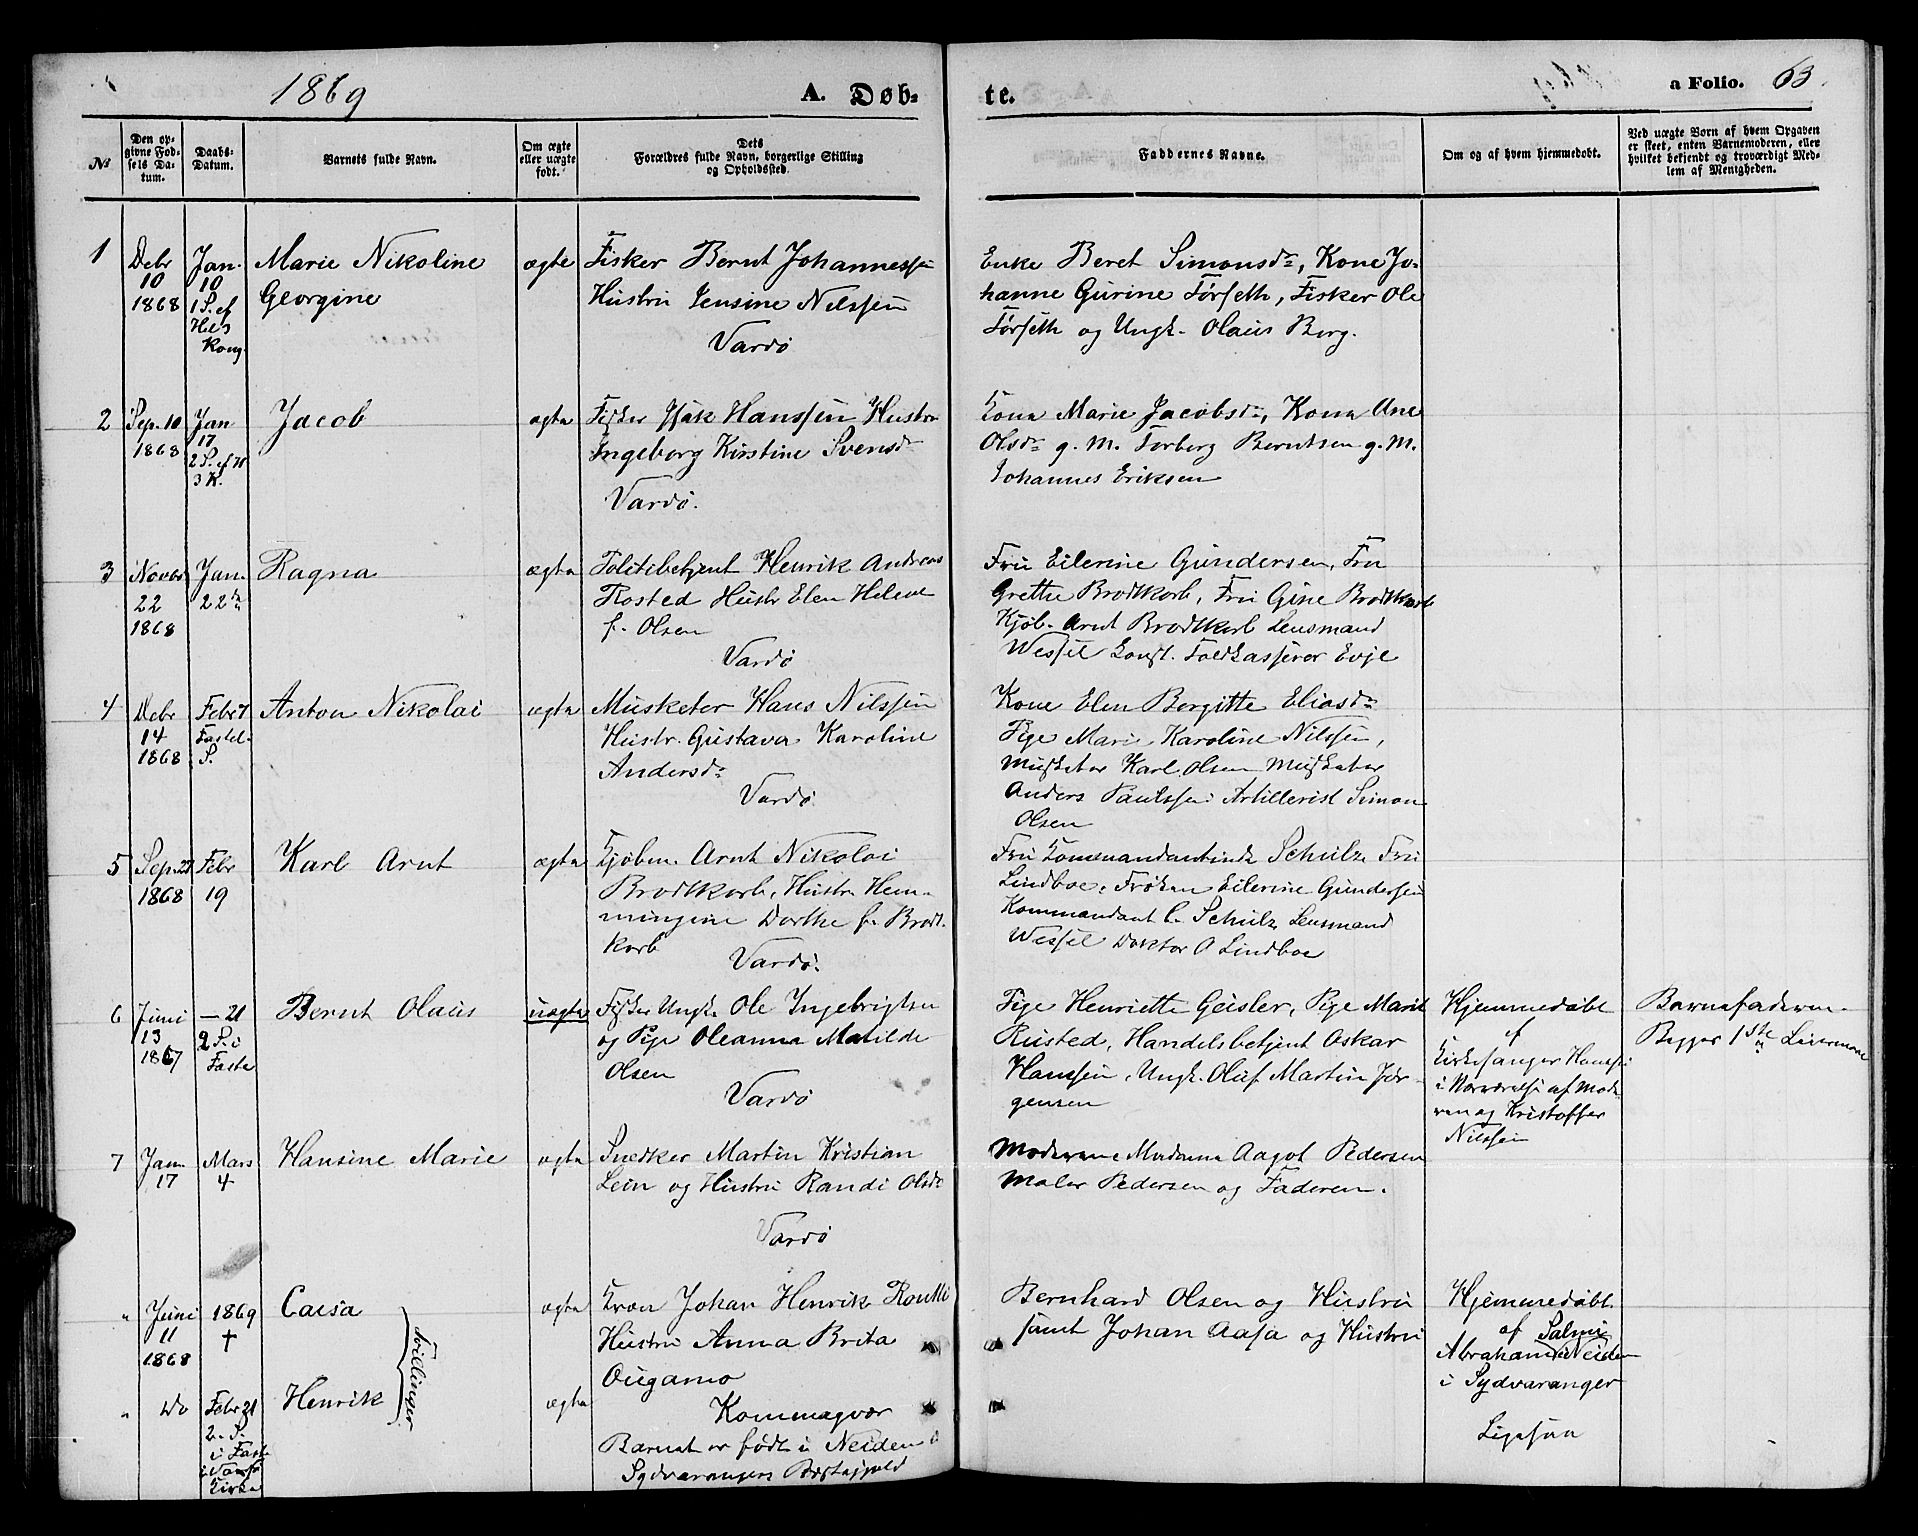 1869
A. Døb-
te.
a Folio. 63.
No
Den op-
givne Fød-
sels Da-
tum.
Daabs-
Datum.
Barnets fulde Navn.
Om ægte
eller uægte
født.
Dets
Forældres fulde Navn, borgerlige Stilling
og Opholdssted.
Faddernes Navne.
Om og af hvem hjemmedøbt.
Ved uægte Børn af hvem Opgaven
er skeet, enten Barnemoderen, eller
hvilket bekjendt og troværdigt Med-
lem af Menigheden.
1
Debr
10
1868
Jan.
10
1 S. ef
Hel 3
Kong.
Marie Nikoline
Georgine
ægte
Fisker Bernt Johannessen
Hustru Jensine Nilssen
Vardø
Enke Beret Simonsdr, Kone Jo-
hanne Gurine Førseth, Fisker Ole
Førseth og Ungk. Olaus Berg.
2
Sep. 10
1868
Jan
17
2 S. ef H
3 K.
Jacob
ægte
Fisker Isak Hanssen Hustru
Ingeborg Kirstine Svensdr
Vardø.
Kone Marie Jacobsdr, Kone Ane
Olsdr g. M. Torberg Berntsen g. M.
Johannes Eriksen
3
Novbr
22
1868
Jan.
22de
Ragna
ægte
Politibetjent Henrik Andreas
Rosted Hustr Elen Helene
f. Olsen
Vardø
Fru Eilerine Gundersen, Fru
Grethe Brodtkorb, Fru Gine Brodtkorb
Kjøb. Arnt Brodtkorb Lensmand
Wessel Konst. Toldkasserer Evje
4
Debr
14
1868
Febr 7
Fastel.
S.
Anton Nikolai
ægte
Musketer Hans Nilssen
Hustr. Gustava Karoline
Andersdr
Vardø
Kone Elen Bergitte Eliasdr
Pige Marie Karoline Nilssen,
Musketer Karl Olsen Musketer
Anders Paulssen Artillerist Simon
Olsen
5
Sep. 23
1868
Febr
19
Karl Arnt
ægte
Kjøbm. Arnt Nikolai
Brodtkorb, Hustru Hem-
mingine Dorthe f. Brodt-
korb
Vardø.
Fru Kommandantinde Schulz Fru
Lindboe, Frøken Eilerine Gundersen
Kommandant C. Schulz Lensmand
Wessel Doktor O Lindboe
6
Juni
13
1867
— 21
2 S. i
Faste
Bernt Olaus
uægte
Fisker Ungk. Ole Ingebrigtsen
og Pige Oleanna Matilde
Olsen
Vardø
Pige Henriette Geisler, Pige Marit
Rusted, Handelsbetjent Oskar
Hanssen, Ungk. Oluf Martin Jør-
gensen
Hjemmedøbt
af
Kirkesanger Hanssen
i Nærværelse af Mode-
ren og Kristoffer
Nilssen
Barnefaderen
Begges 1ste Leiermaal
7
Jan.
17
Mars
4
Hansine Marie
ægte
Snedker Martin Kristian
Lein og Hustru Randi Olsdr
Vardø
Moderen Madame Aagot Pedersen
Maler Pedersen og Faderen.
"
Juni
11
1868
1869
†
Caisa
Tvillinger
ægte
Kvæn Johan Henrik
Hustru Anna Brita
Ougamo
Bernhard Olsen og Hustru
samt Johan Aasa og Hustru
Hjemmedøbt
af Salmi
Abraham i Neiden
i Sydvaranger
"
Do
Febr 21
2. S.
i Faste
i Vadsø
Kirke
Henrik
ægte
Kommagvær
Barnet er født i Neiden i
Sydvarangers Præstegjeld
Ligesaa